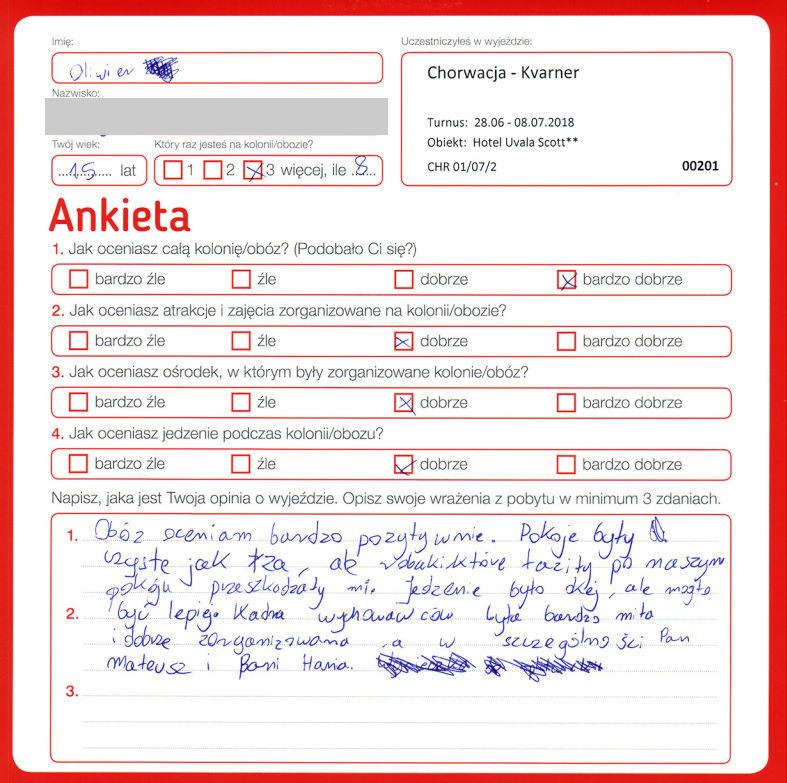 Imię:
Oliwier
Nazwisko:
Twój wiek:
15 lat
Który raz jesteś na kolonii/obozie?
1 2 3 więcej, ile 8
Uczestniczyłeś w wyjeździe:
Chorwacja - Kvarner
Turnus: 28.06 - 08.07.2018
Obiekt: Hotel Uvala Scott**
CHR 01/07/2 00201
Ankieta
1. Jak oceniasz całą kolonię/obóz? (Podobało Ci się?)
bardzo źle źle dobrze bardzo dobrze
2. Jak oceniasz atrakcje i zajęcia zorganizowane na kolonii/obozie?
bardzo źle źle dobrze bardzo dobrze
3. Jak oceniasz ośrodek, w którym były zorganizowane kolonie/obóz?
bardzo źle źle dobrze bardzo dobrze
4. Jak oceniasz jedzenie podczas kolonii/obozu?
bardzo źle źle dobrze bardzo dobrze
Napisz, jaka jest Twoja opinia o wyjeździe. Opisz swoje wrażenia z pobytu w minimum 3 zdaniach.
1. Obóz oceniam bardzo pozytywnie. Pokoje były
czyste jak łza, ale które łaziły po naszym
pokoju przeszkadzały mi. Jedzenie było okej, ale mogło
2. być lepiej. Kadra wychowawców była bardzo miła
i dobrze zorganizowana a w szczególności Pan
Mateusz i Pani Hania.
3.